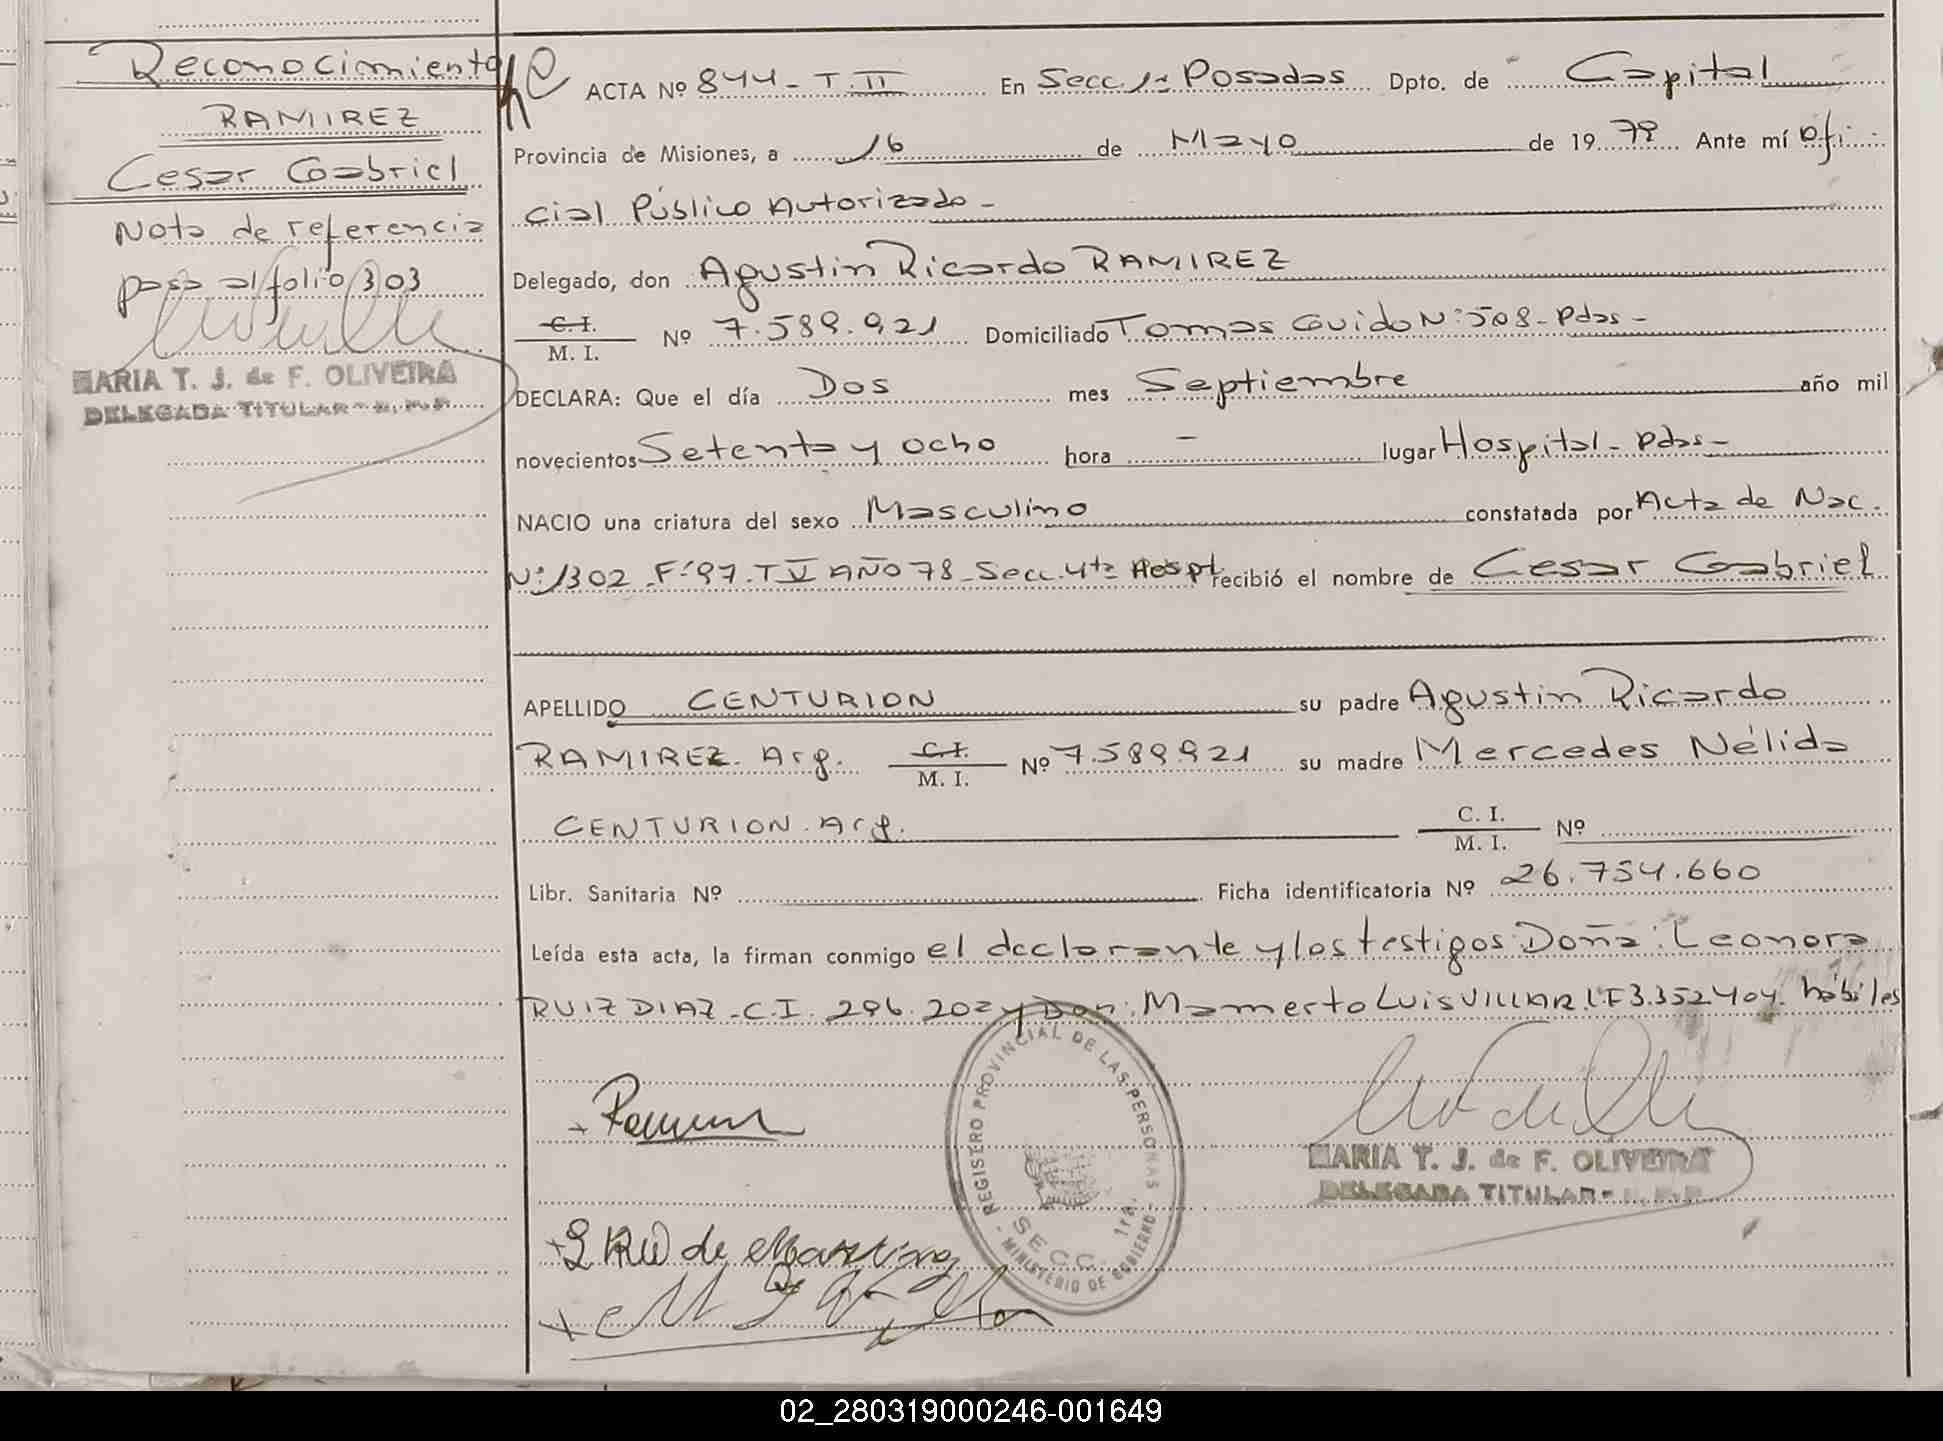 Reconocimiento
RAMIREZ
Cesar Gabriel
Nota de referencia
pasa al folio 303
MARIA T. J. de F. OLIVEIRA
DELEGADA TITULAR - R. P. P.
ACTA Nº 844 - T. II En Secc. 1ª Posadas Dpto. de Capital
Provincia de Misiones, a 16 de Mayo de 1979 Ante mí Ofi
cial Público Autorizado -
Delegado, don Agustin Ricardo RAMIREZ
C.I.
M. I. Nº 7.589.921 Domiciliado Tomas Guido Nº 508 - Pdas -
DECLARA: Que el día Dos mes Septiembre año mil
novecientos Setenta y ocho hora - lugar Hospital - Pdas -
NACIO una criatura del sexo Masculino constatada por Acta de Nac.
Nº 1302 - Fº 97. T V AÑO 78 - Secc. 4ta Hospt recibió el nombre de Cesar Gabriel
APELLIDO CENTURION su padre Agustin Ricardo
RAMIREZ. Arg. C.I.
M. I. Nº 7.589.921 su madre Mercedes Nélida
CENTURION. Arg. C. I.
M. I. Nº
Libr. Sanitaria Nº Ficha identificatoria Nº 26.754.660
Leída esta acta, la firman conmigo el declarante y los testigos: Doña: Leonora
RUIZ DIAZ - C.I. 296.202 y Don: Mamerto Luis VILLAR L.E 3.352.404. hábiles
REGISTRO PROVINCIAL DE LAS PERSONAS
- MINISTERIO DE GOBIERNO -
SECC. 1ra.
MARIA T. J. de F. OLIVEIRA
DELEGADA TITULAR -
02_280319000246-001649